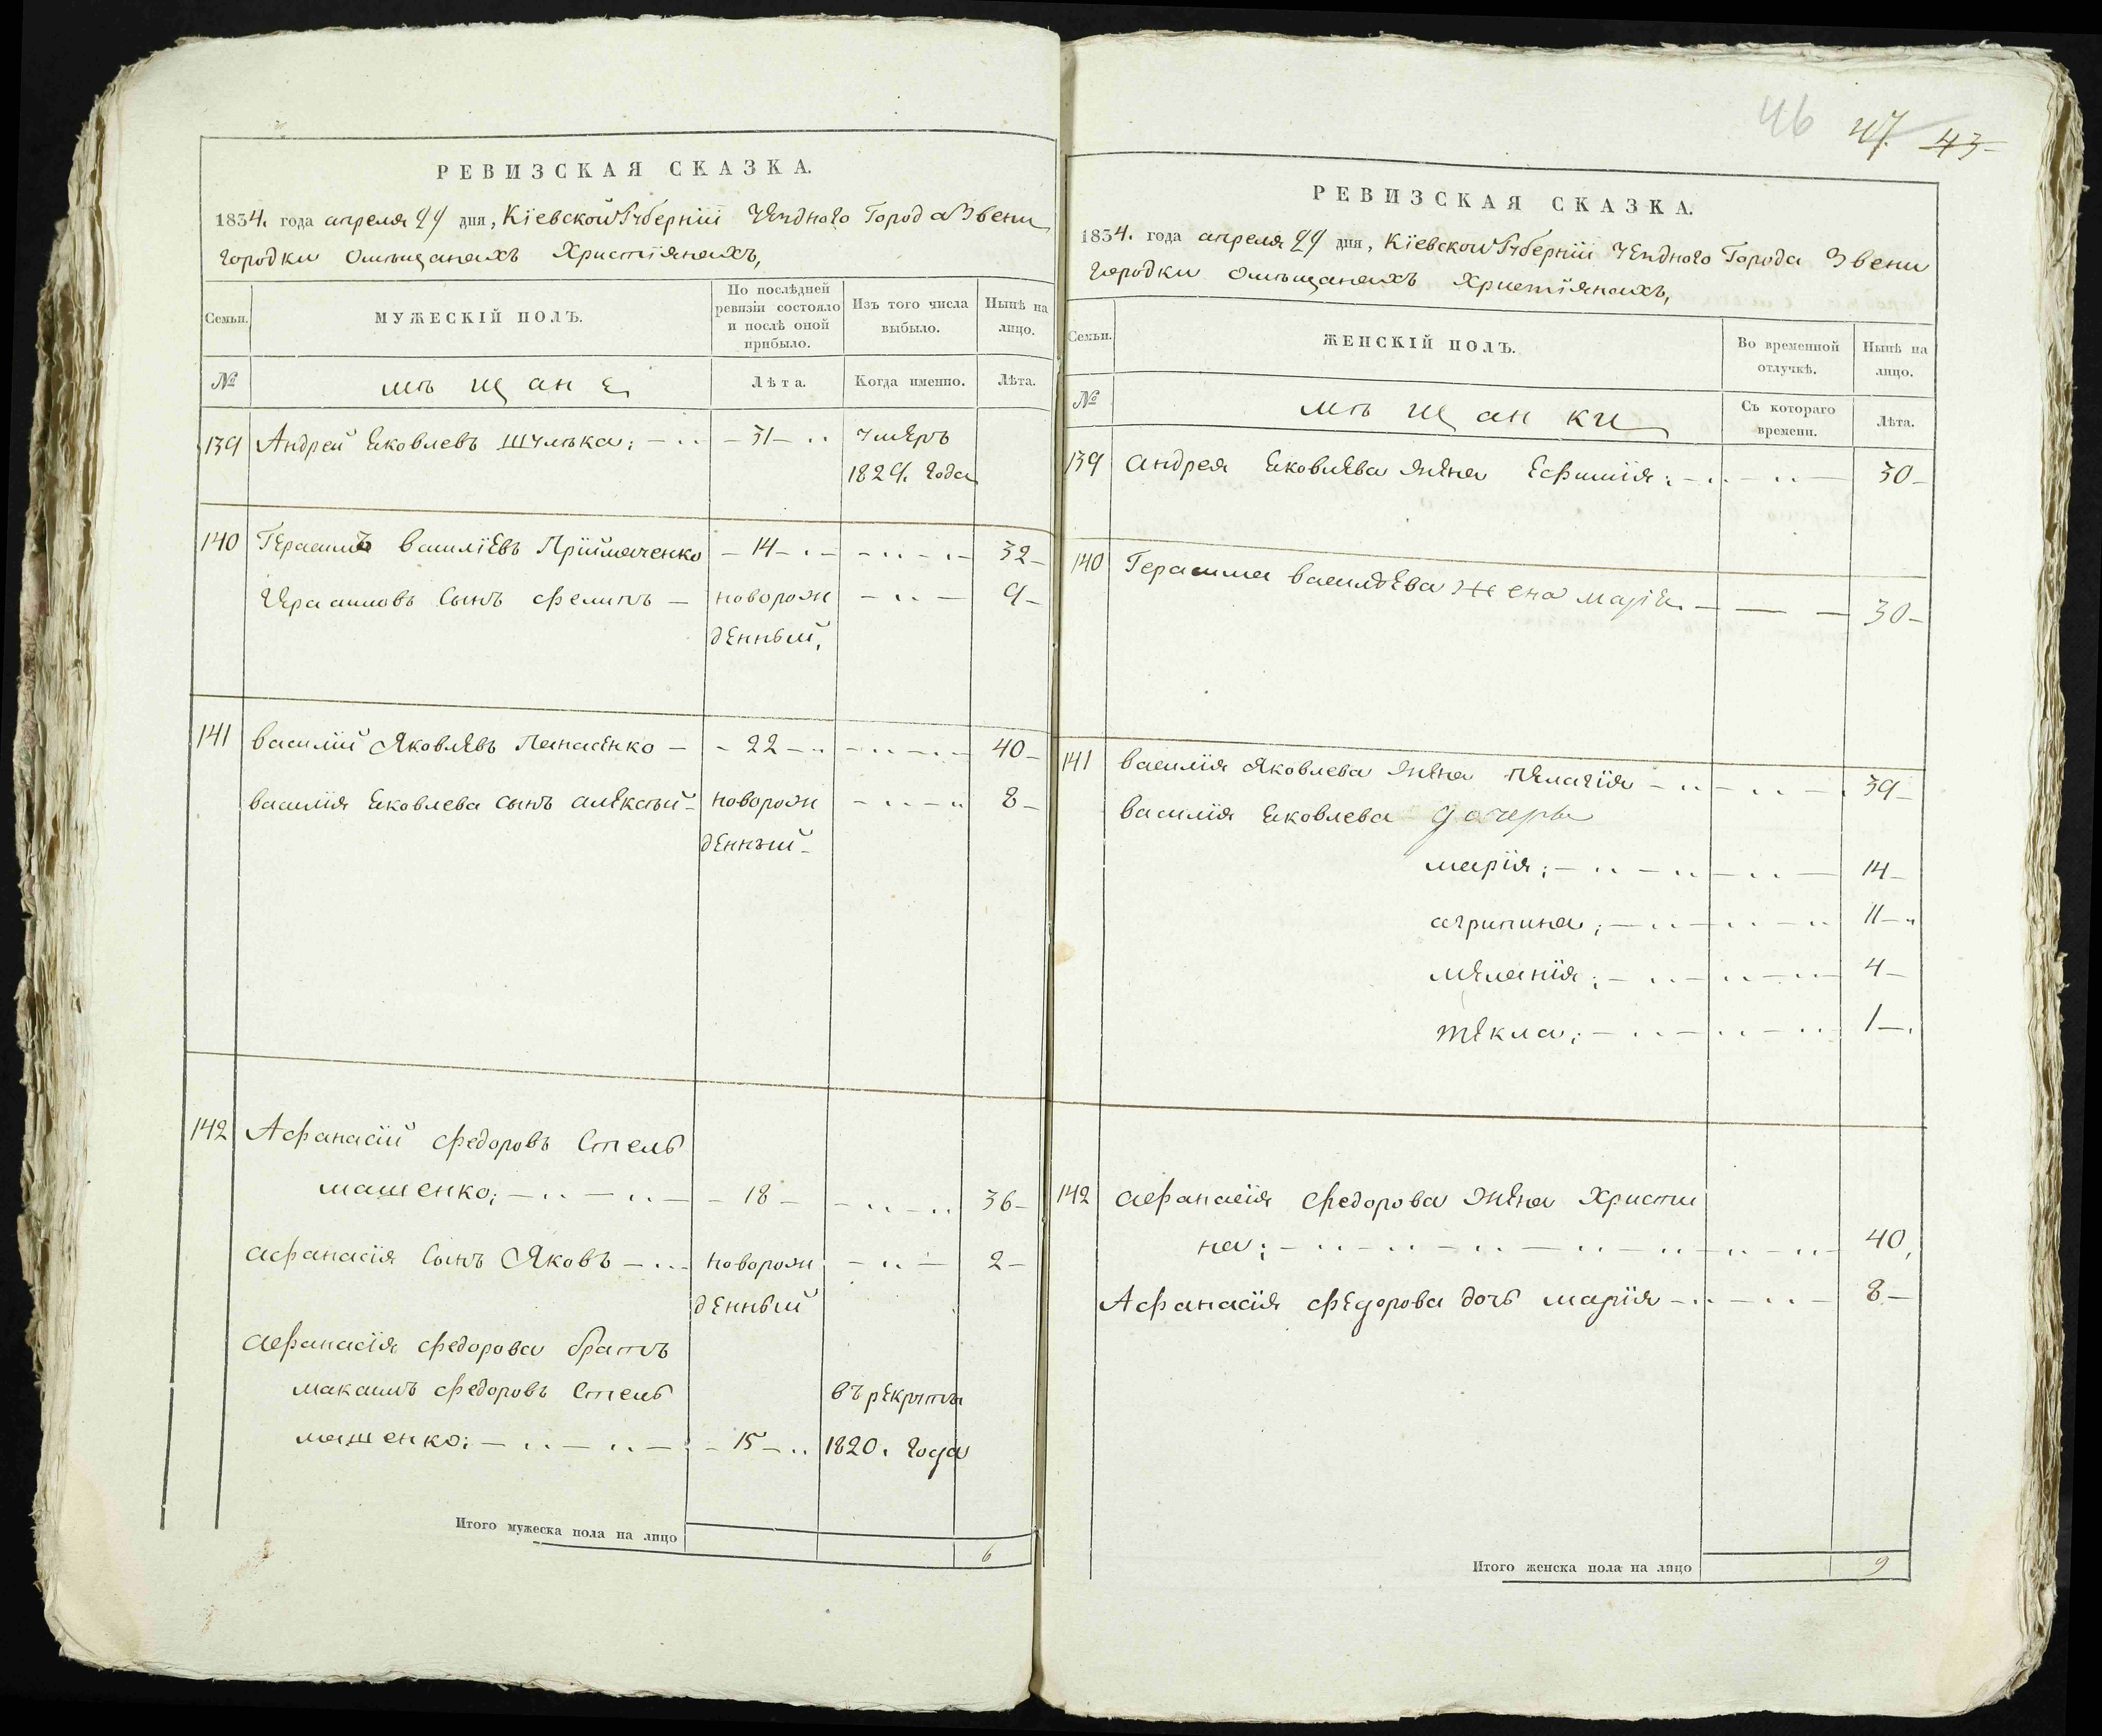 46 47. 43
РЕВИЗСКАЯ СКАЗКА.
1834. года апреля 29 дня, Кіевской Губерніи Уезднаго Города Звени
городки омѣщанахъ Христіянахъ,
Семьи.
МУЖЕСКІЙ ПОЛЪ.
По послѣдней
ревизіи состояло
и послѣ оной
прибыло.
Изъ того числа
выбыло.
Нынѣ на
лицо.
№
мѣщане
Лѣта.
Когда именно.
Лѣта.
139 Андрей Яковлевъ Шулька; 31 умеръ
1829. года
140 Герасимъ Василіевъ Пріймаченко 14 32
Герасимовъ Сынъ Филипъ новорож 9
денный,
141 Василій Яковлевъ Панасенко 22 40
Василія Яковлева сынъ алексѣй новорож 8
денный
142 Афанасій Федоровъ Стель
машенко; 18 36
афанасія Сынъ Яковъ новорож 2
денный
афанасія Федорова братъ
максимъ Федоровъ Стель въ рекруты
машенко; 15 1820. года
Итого мужеска пола на лицо 6
РЕВИЗСКАЯ СКАЗКА.
1834. года апреля 29 дня, Кіевской Губерніи Уезднаго Города Звени
городки омѣщанахъ Христіянахъ,
Семьи.
ЖЕНСКІЙ ПОЛЪ.
Во временной
отлучкѣ.
Нынѣ на
лицо.
№
мѣщанки
Съ котораго
времени.
Лѣта.
139 андрея Яковлева жена Ефимія; 30
140 Герасима Васильева жена марія 30
141 Василія Яковлева жена пелагія 39
Василія Яковлева дочеры
марія; 14
агрипина; 11
меланія; 4
текла; 1
142 афанасія Федорова жена Христи
на; 40,
Афанасія федорова дочь марія 8
Итого женска пола на лицо 9